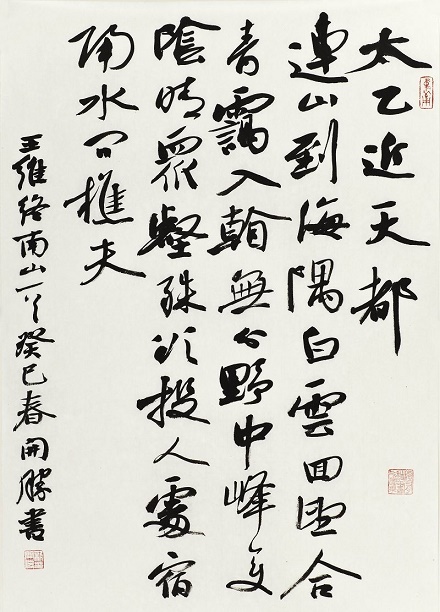 太乙近天都
連山到海隅白雲回望合
青靄入看無分野中峰变
陰晴眾壑殊欲投人處宿
隔水问樵夫
王維终南山一首癸巳春開勝書